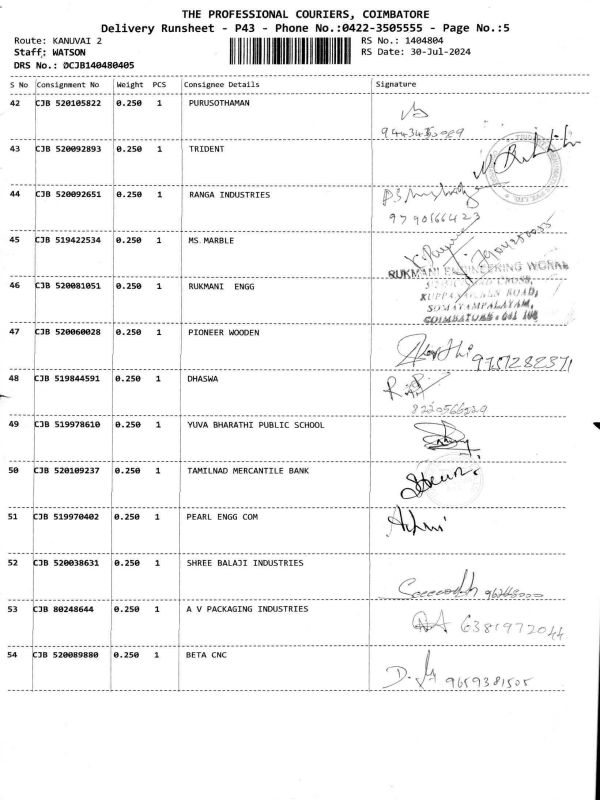 THE PROFESSIONAL COURIERS, COIMBATORE
Delivery Runsheet - P43 - Phone No.:0422-3505555 - Page No.:5
Route: KANUVAI 2 RS No.: 1404804
Staff: WATSON RS Date: 30-Jul-2024
DRS No.: DCJB140480405
S No Consignment No Weight PCS Consignee Details Signature
42 CJB 520105822 0.250 1 PURUSOTHAMAN
43 CJB 520092893 0.250 1 TRIDENT
44 CJB 520092651 0.250 1 RANGA INDUSTRIES
9790566423
45 CJB 519422534 0.250 1 MS MARBLE
RUKMANI ENGINEERING WORKS
46 CJB 520081051 0.250 1 RUKMANI ENGG
ROAD,
SOMAYAMPALAYAM,
COIMBATORE - 641 108
47 CJB 520060028 0.250 1 PIONEER WOODEN
9751282371
48 CJB 519844591 0.250 1 DHASWA
8220566220
49 CJB 519978610 0.250 1 YUVA BHARATHI PUBLIC SCHOOL
50 CJB 520109237 0.250 1 TAMILNAD MERCANTILE BANK
51 CJB 519970402 0.250 1 PEARL ENGG COM
52 CJB 520038631 0.250 1 SHREE BALAJI INDUSTRIES
53 CJB 80248644 0.250 1 A V PACKAGING INDUSTRIES
6381972044
54 CJB 520089880 0.250 1 BETA CNC
9659381505